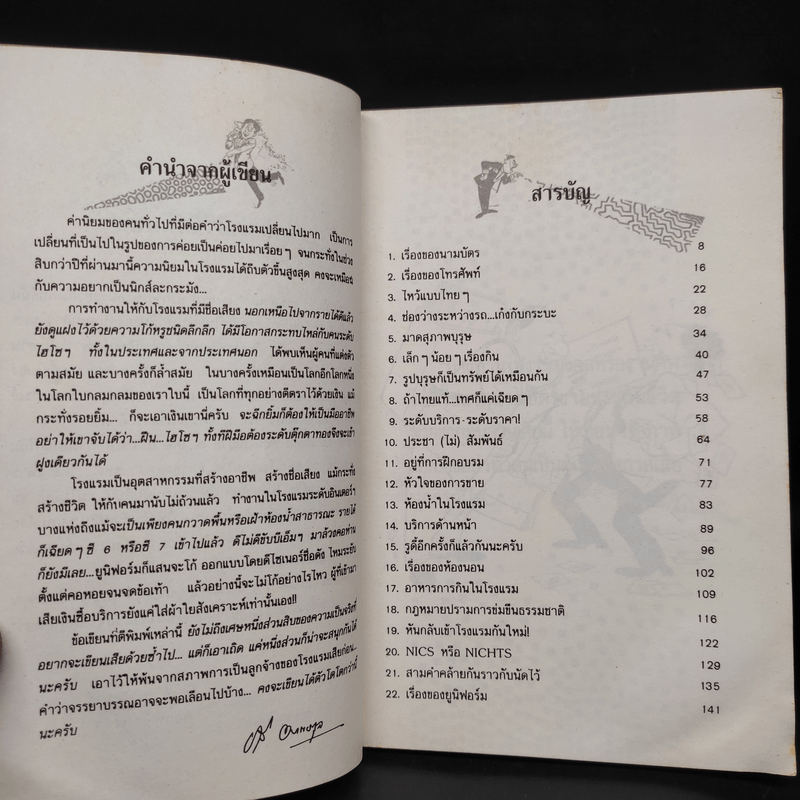 คำนำจากผู้เขียน
ค่านิยมของคนทั่วไปที่มีต่อคำว่าโรงแรมเปลี่ยนไปมาก เป็นการ
เปลี่ยนที่เป็นไปในรูปของการค่อยเป็นค่อยไปมาเรื่อยๆ จนกระทั่งในช่วง
สิบกว่าปีที่ผ่านมานี้ความนิยมในโรงแรมได้ถีบตัวขึ้นสูงสุด คงจะเหมือน
กับความอยากเป็นนิกส์ละกระมัง...
การทำงานให้กับโรงแรมที่มีชื่อเสียง นอกเหนือไปจากรายได้ดีแล้ว
ยังดูแฝงไว้ด้วยความโก้หรูชนิดลึกลึก ได้มีโอกาสกระทบไหล่กับคนระดับ
ไฮโซๆ ทั้งในประเทศและจากประเทศนอก ได้พบเห็นผู้คนที่แต่งตัว
ตามสมัย และบางครั้งก็ล้ำสมัย ในบางครั้งเหมือนเป็นโลกอีกโลกหนึ่ง
ในโลกใบกลมกลมของเราใบนี้ เป็นโลกที่ทุกอย่างตีตราไว้ด้วยเงิน แม้
กระทั่งรอยยิ้ม... ก็จะเอาเงินเขานี่ครับ จะฉีกยิ้มก็ต้องให้เป็นมืออาชีพ
อย่าให้เขาจับได้ว่า...ฝืน...ไฮโซๆ ทั้งทีฝีมือต้องระดับตุ๊กตาทองจึงจะเข้า
ฝูงเดียวกันได้
โรงแรมเป็นอุตสาหกรรมที่สร้างอาชีพ สร้างชื่อเสียง แม้กระทั่ง
สร้างชีวิต ให้กับคนมานับไม่ถ้วนแล้ว ทำงานในโรงแรมระดับอินเตอร์ฯ
บางแห่งถึงแม้จะเป็นเพียงคนกวาดพื้นหรือเฝ้าห้องน้ำสาธารณะ รายได้
ก็เฉียดๆ ซี 6 หรือซี 7 เข้าไปแล้ว ดีไม่ดีขับบีเอ็มฯ มาล้วงคอห่าน
ก็ยังมีเลย...ยูนิฟอร์มก็แสนจะโก้ ออกแบบโดยดีไซเนอร์ชื่อดัง ไหมระยับ
ตั้งแต่คอหอยจนจดข้อเท้า แล้วอย่างนี้จะไม่โก้อย่างไรไหว ผู้ที่เข้ามา
เสียเงินซื้อบริการยังแค่ใส่ผ้าใยสังเคราะห์เท่านั้นเอง!!
ข้อเขียนที่ตีพิมพ์เหล่านี้ ยังไม่ถึงเศษหนึ่งส่วนสิบของความเป็นจริงที่
อยากจะเขียนเสียด้วยซ้ำไป... แต่ก็เอาเถิด แค่หนึ่งส่วนก็น่าจะสนุกกันได้
นะครับ เอาไว้ให้พ้นจากสภาพการเป็นลูกจ้างของโรงแรมเสียก่อน...
คำว่าจรรยาบรรณอาจจะพอเลือนไปบ้าง... คงจะเขียนได้ตัวโตโตกว่านี้
นะครับ
สารบัญ
1. เรื่องของนามบัตร 8
2. เรื่องของโทรศัพท์ 16
3. ไหว้แบบไทยๆ 22
4. ช่องว่างระหว่างรถ...เก๋งกับกระบะ 28
5. มาดสุภาพบุรุษ 34
6. เล็กๆ น้อยๆ เรื่องกิน 40
7. รูปบุรุษก็เป็นทรัพย์ได้เหมือนกัน 47
8. ถ้าไทยแท้...เทศก็แค่เฉียดๆ 53
9. ระดับบริการ-ระดับราคา! 58
10. ประชา (ไม่) สัมพันธ์ 64
11. อยู่ที่การฝึกอบรม 71
12. หัวใจของการขาย 77
13. ห้องน้ำในโรงแรม 83
14. บริการด้านหน้า 89
15. รูดี้อีกครั้งก็แล้วกันนะครับ 96
16. เรื่องของห้องนอน 102
17. อาหารการกินในโรงแรม 109
18. กฎหมายปรามการข่มขืนธรรมชาติ 116
19. หันกลับเข้าโรงแรมกันใหม่! 122
20. NICS หรือ NICHTS 129
21. สามคำคล้ายกันราวกับนัดไว้ 135
22. เรื่องของยูนิฟอร์ม 141